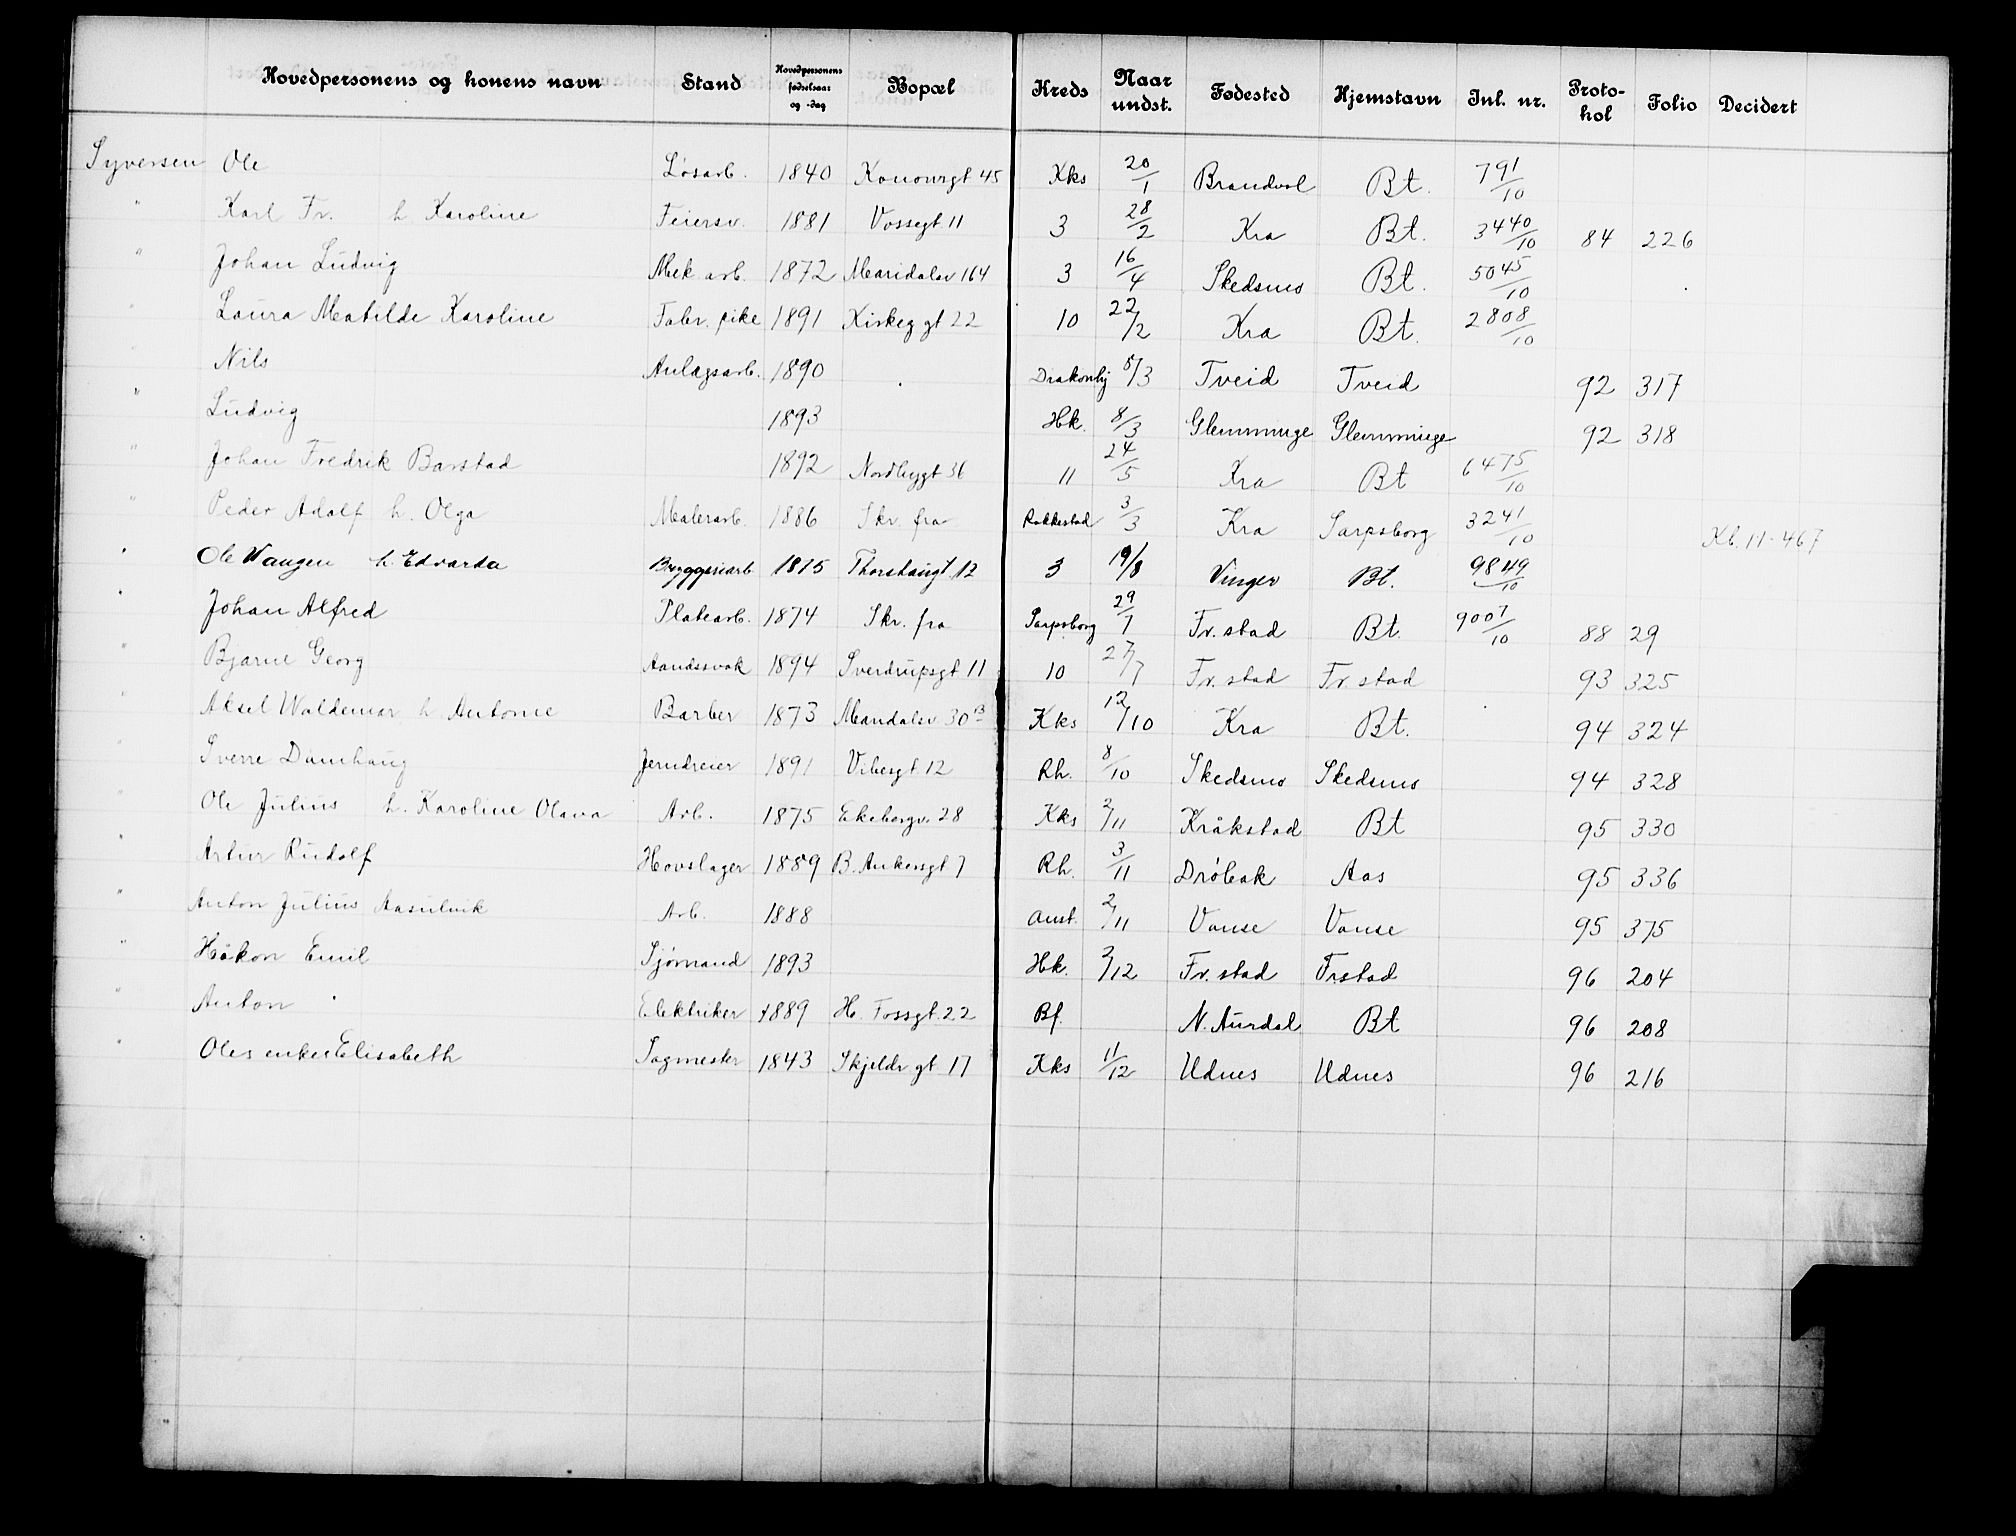 Hovedpersonens og konens navn Stand Hovedpersonens fødselsaar og -dag Bopæl Kreds Naar undst. Fødested Hjemstavn Inl. nr. Protokol Folio Decidert
Syversen Ole Løsarb. 1840 Konowsgt 45 Kks 20/1 Brandval Bt. 791/10
" Karl Fr. h. Karoline Feiersv. 1881 Vossegt 11 3 28/2 Kra Bt. 3440/10 84 226
" Johan Ludvig Mek arb. 1872 Maridalsv 164 3 16/4 Skedsmo Bt. 5045/10
" Laura Matilde Karoline Fabr. pike 1891 Kirkeg gt 22 10 22/2 Kra Bt. 2808/10
" Nils Anlægsarb. 1890 5/3 Tveid Tveid 92 317
" Ludvig 1893 Hk. 8/3 Glemminge Glemminge 92 318
" Johan Fredrik Barstad 1892 Nordbygt 36 11 24/5 Kra Bt 6475/10
" Peder Adolf h. Olga Malerarb. 1886 Skr. fra Rakkestad 3/3 Kra Sarpsborg 3241/10 Kb. 11-467
" Ole Wangen h. Edvarda Bryggeriarb 1875 Thorshaugt. 12 3 19/8 Vinger Bt. 9849/10
" Johan Alfred Platearb. 1874 Skr. fra Sarpsborg 29/7 Fr.stad Bt. 9007/10 88 29
" Bjarne Georg Aandssvak 1894 Sverdrupsgt 11 10 27/7 Fr.stad Fr.stad 93 325
" Aksel Waldemar h Antonie Barber 1873 Maridalsv 30 B Kks 12/10 Kra Bt. 94 324
" Sverre Damhaug Jerndreier 1891 Vibesgt 12 Rh. 8/10 Skedsmo Skedsmo 94 328
" Ole Julius h. Karoline Olava Arb. 1875 Ekebergv. 28 Kks 2/11 Kråkstad Bt 95 330
" Artur Rudolf Hovslager 1889 B. Ankersgt 7 Rh. 3/11 Drøbak Aas 95 336
" Anton Julius Aasulvik Arb. 1888 Anst. 2/11 Vanse Vanse 95 375
" Håkon Emil Sjømand 1893 Hk. 2/12 Fr.stad Frstad 96 204
" Anton Elektriker 1889 H. Fossgt. 22 Bf. N. Aurdal Bt 96 208
" Oles enke Elisabeth Sagmester 1843 Skjeldr gt 17 Kks 11/12 Udnes Udnes 96 216